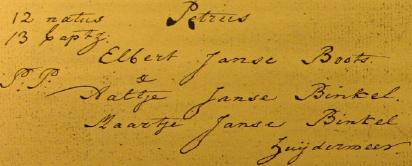 12 natus Petrus
13 baptz:
Elbert Janse Boots.
P.P. &
Aaltje Janse Binkel.
Maartje Janse Binkel
Zuijdermeer